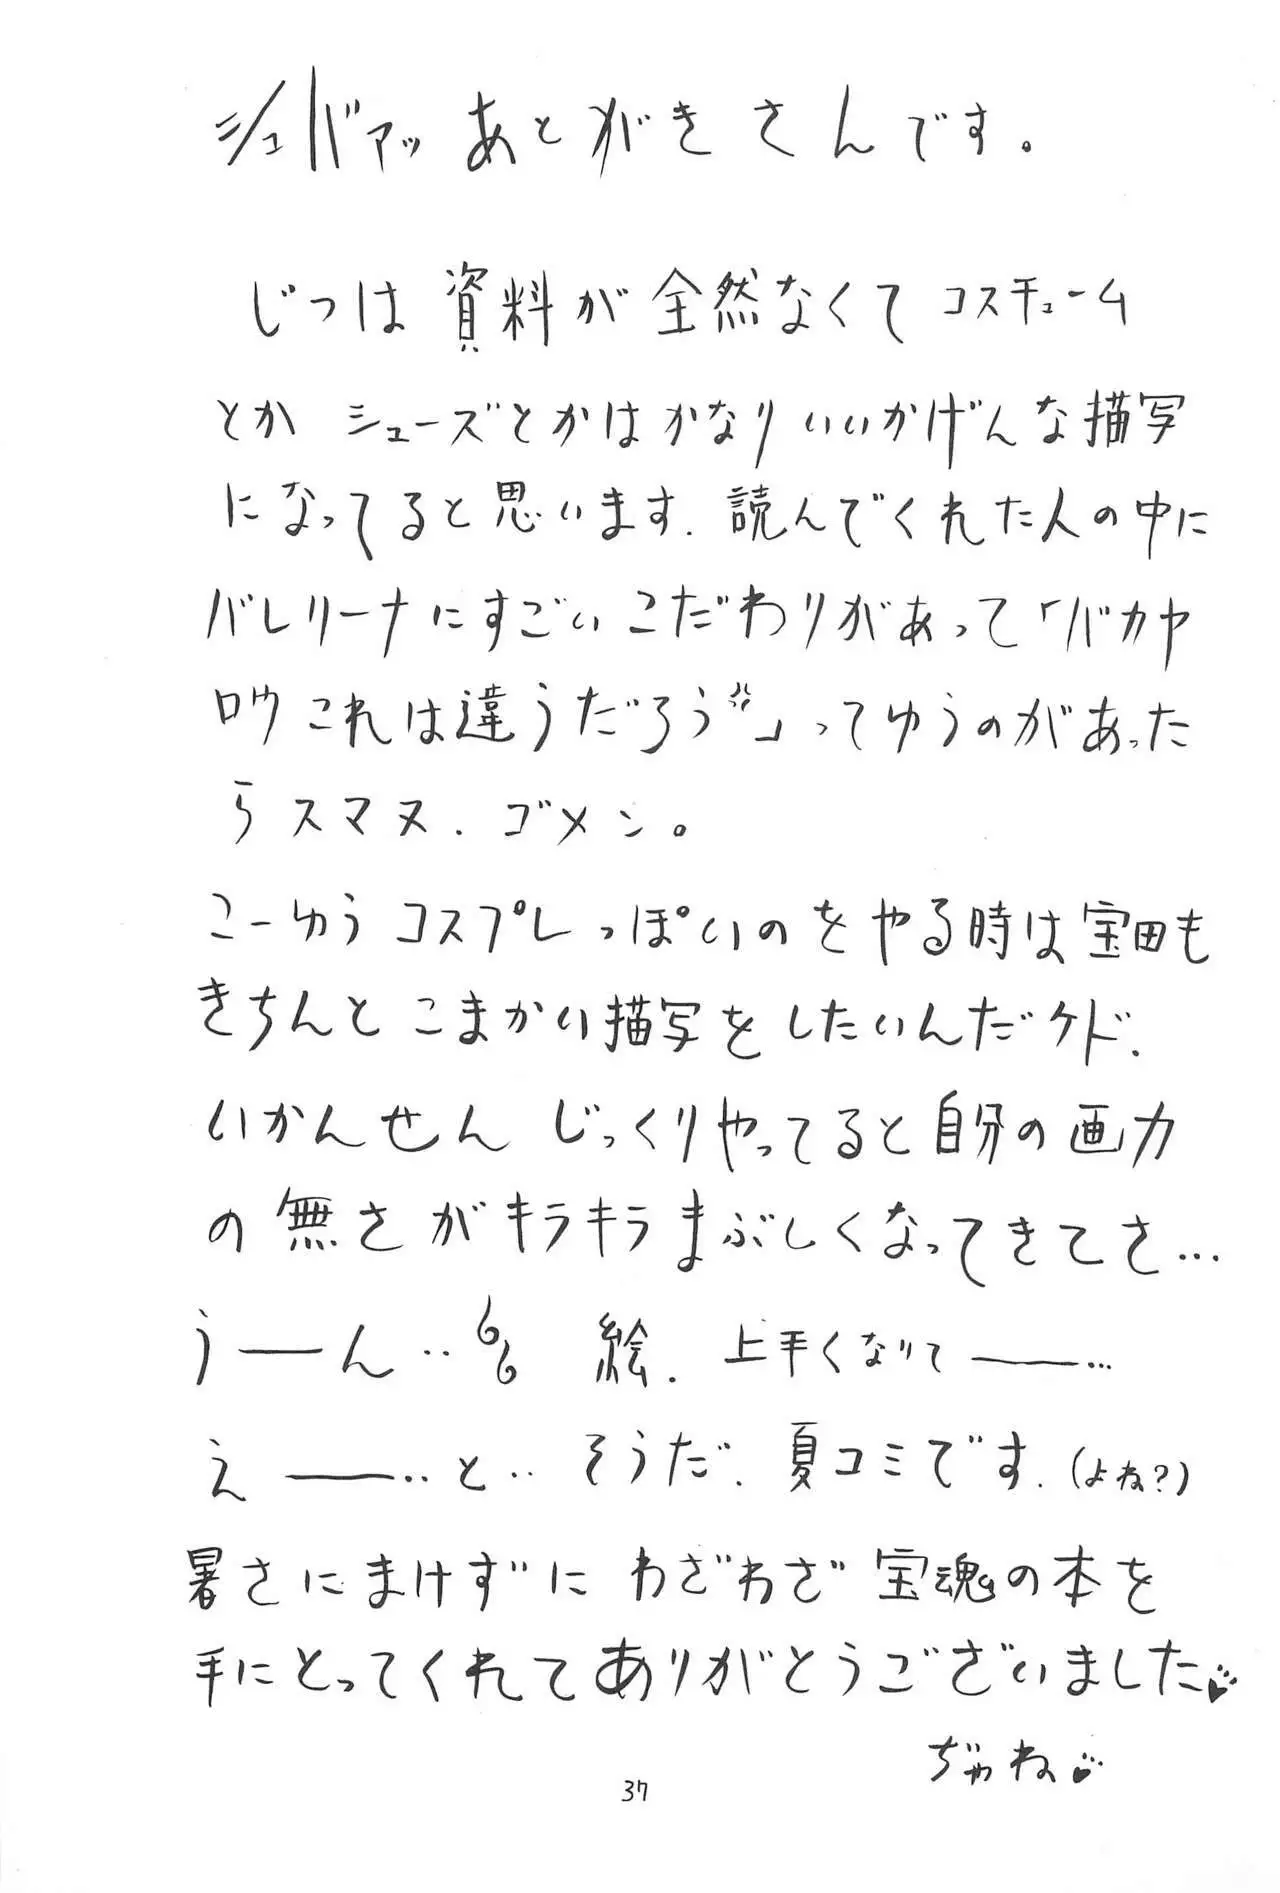 シュバァッ あとがきさんです。
じつは資料が全然なくてコスチューム
とか シューズとかはかなりいいかげんな描写
になってると思います. 読んでくれた人の中に
バレリーナにすごいこだわりがあって「バカヤ
ロウこれは違うだろう」ってゆうのがあった
らスマヌ. ゴメン。
こーゆうコスプレっぽいのをやる時は宝田も
きちんと こまかい描写をしたいんだケド.
いかんせん じっくりやってると自分の画力
の無さがキラキラまぶしくなってきてさ…
うーん‥ 絵. 上手くなりてー…
えー‥と‥ そうだ. 夏コミです. (よね?)
暑さにまけずに わざわざ宝魂の本を
手にとってくれてありがとうございました♥
ぢゃね♥
37